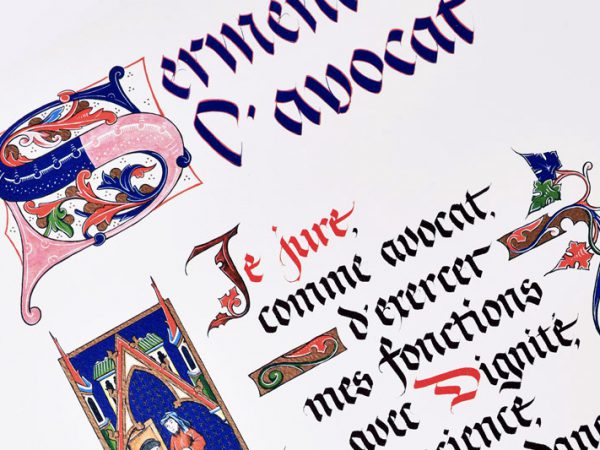 Serment
avocat
Je jure,
comme avocat,
d'exercer
mes fonctions
avec Dignité,